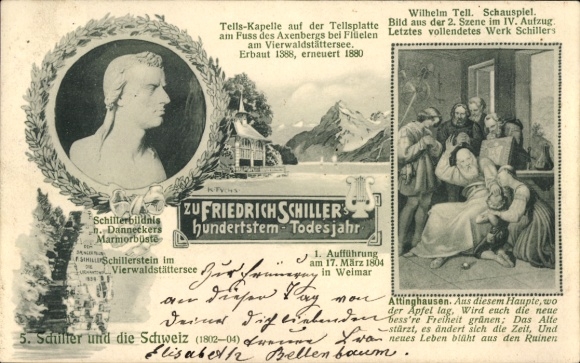 Tells-Kapelle auf der Tellsplatte
am Fuss des Axenbergs bei Flüelen
am Vierwaldstättersee.
Erbaut 1388, erneuert 1880
Wilhelm Tell. Schauspiel.
Bild aus der 2. Szene im IV. Aufzug.
Letztes vollendetes Werk Schillers
Schillerbildnis
n. Danneckers
Marmorbüste
Schillerstein im
Vierwaldstättersee
ZU FRIEDRICH SCHILLER's
hundertstem-Todesjahr
1. Aufführung
am 17. März 1804
in Weimar
Attinghausen. Aus diesem Haupte, wo
der Apfel lag, Wird euch die neue
bess're Freiheit grünen; Das Alte
stürzt, es ändert sich die Zeit, Und
neues Leben blüht aus den Ruinen
5. Schiller und die Schweiz (1802-04)
Zur Erinnerung
an diesen Tag von
Deiner Dich liebenden
treuen
Elisabeth Bellenbaum.